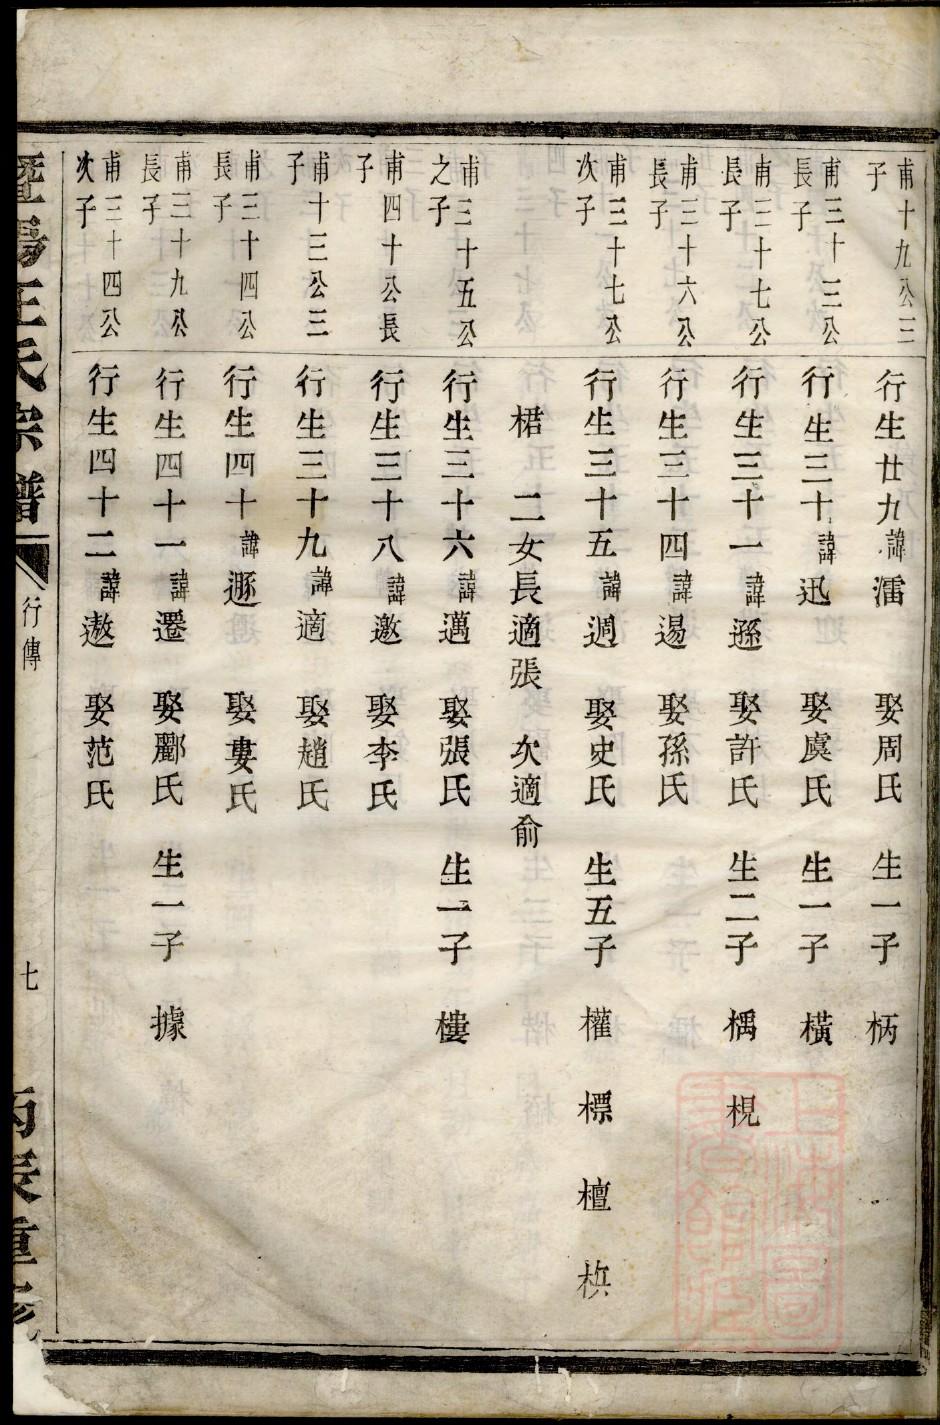 甫十九公三子
行生廿九諱澑 娶周氏 生一子 柄
甫三十三公長子
行生三十諱迅 娶虞氏 生一子 橫
甫三十七公長子
行生三十一諱遜 娶許氏 生二子 楀 梘
甫三十六公長子
行生三十四諱逿 娶孫氏
甫三十七公次子
行生三十五諱週 娶史氏 生五子 權 標 檀 栱
楉 二女長適張 次適俞
甫三十五公之子
行生三十六諱邁 娶張氏 生一子 樓
甫四十公長子
行生三十八諱邀 娶李氏
甫十三公三子
行生三十九諱適 娶趙氏
甫三十四公長子
行生四十諱遯 娶婁氏
甫三十九公長子
行生四十一諱遷 娶酈氏 生一子 據
甫三十四公次子
行生四十二諱遨 娶范氏
暨陽王氏宗譜
行傳
七
丙辰重修